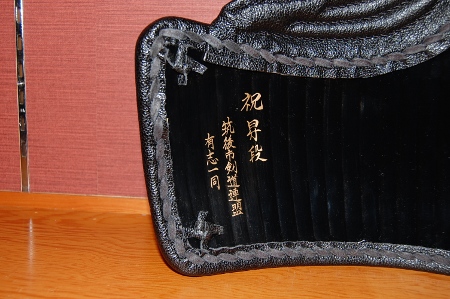 祝昇段
筑後市剣道連盟
有志一同